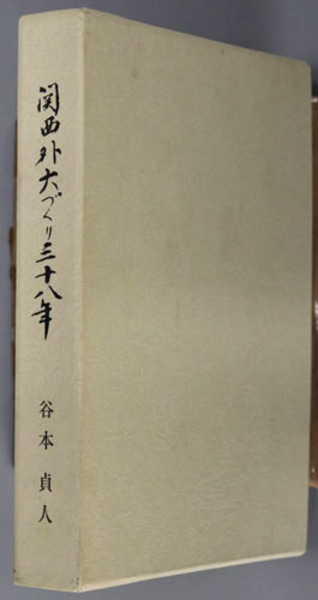 関西外大づくり三十八年
谷本貞人